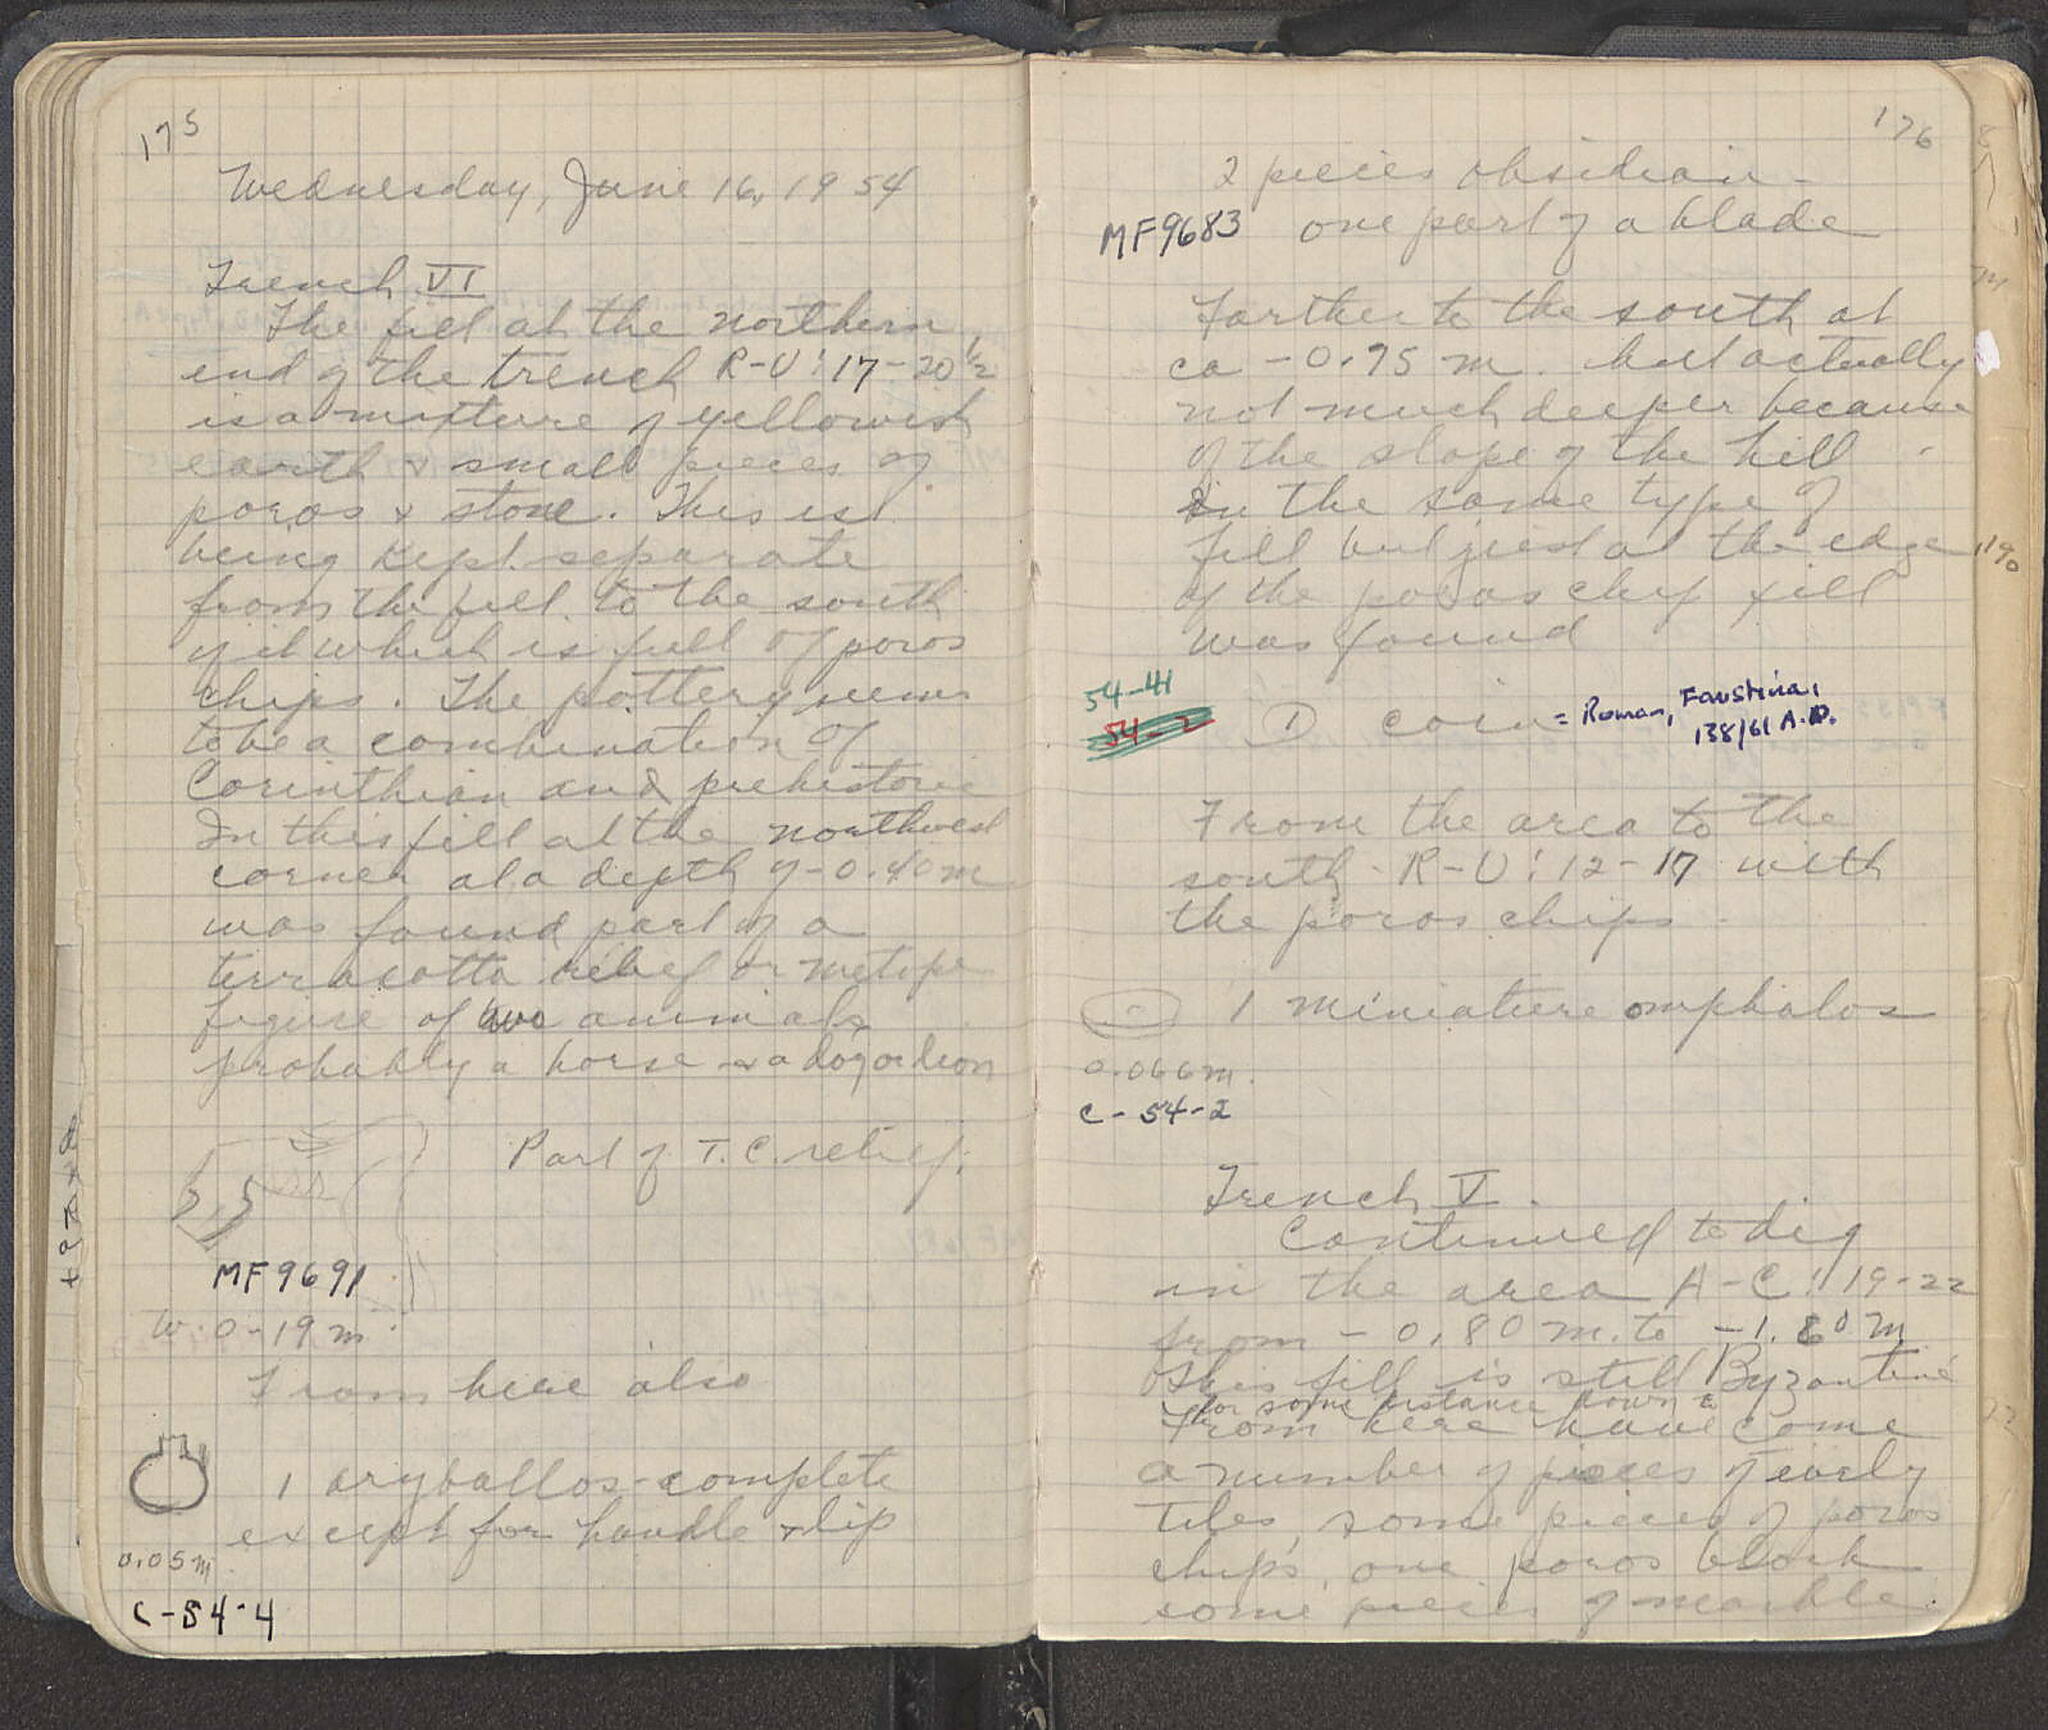 175
Wednesday, June 16, 1954
Trench VI
The fill at the northern
end of the trench R-U:17-20½
is a mixture of yellowish
earth & small pieces of
poros & stone. This is
being kept separate
from the fill to the south
of it which is full of poros
chips. The pottery seems
to be a combination of
Corinthian and prehistoric
In this fill at the northwest
corner at a depth of -0.40m
was found part of a
terracotta relief or metope
figure of two animals
probably a horse & a dog or lion
Part of T.C. relief.
MF9691
W. 0-19m.
From here also
1 aryballos-complete
except for handle & lip
0.05m.
C-54-4
176
2 pieces obsidian -
MF9683 one part of a blade
Farther to the south at
ca -0.95 m. but actually
not much deeper because
of the slope of the hill -
In the same type of
fill but just at the edge
of the poros chip fill
was found
54-41
54-2 ① coin = Roman, Faustina,
138/61 A.D.
From the area to the
south R-U:12-17 with
the poros chips -
1 miniature omphalos
0.066m.
C-54-2
Trench V.
Continued to dig
in the area A-C:19-22
from -0.80 m. to -1.80 m
This fill is still Byzantine
for some distance down
From here have come
a number of pieces of early
tiles, some pieces of poros
chips, one poros block
some pieces of marble.